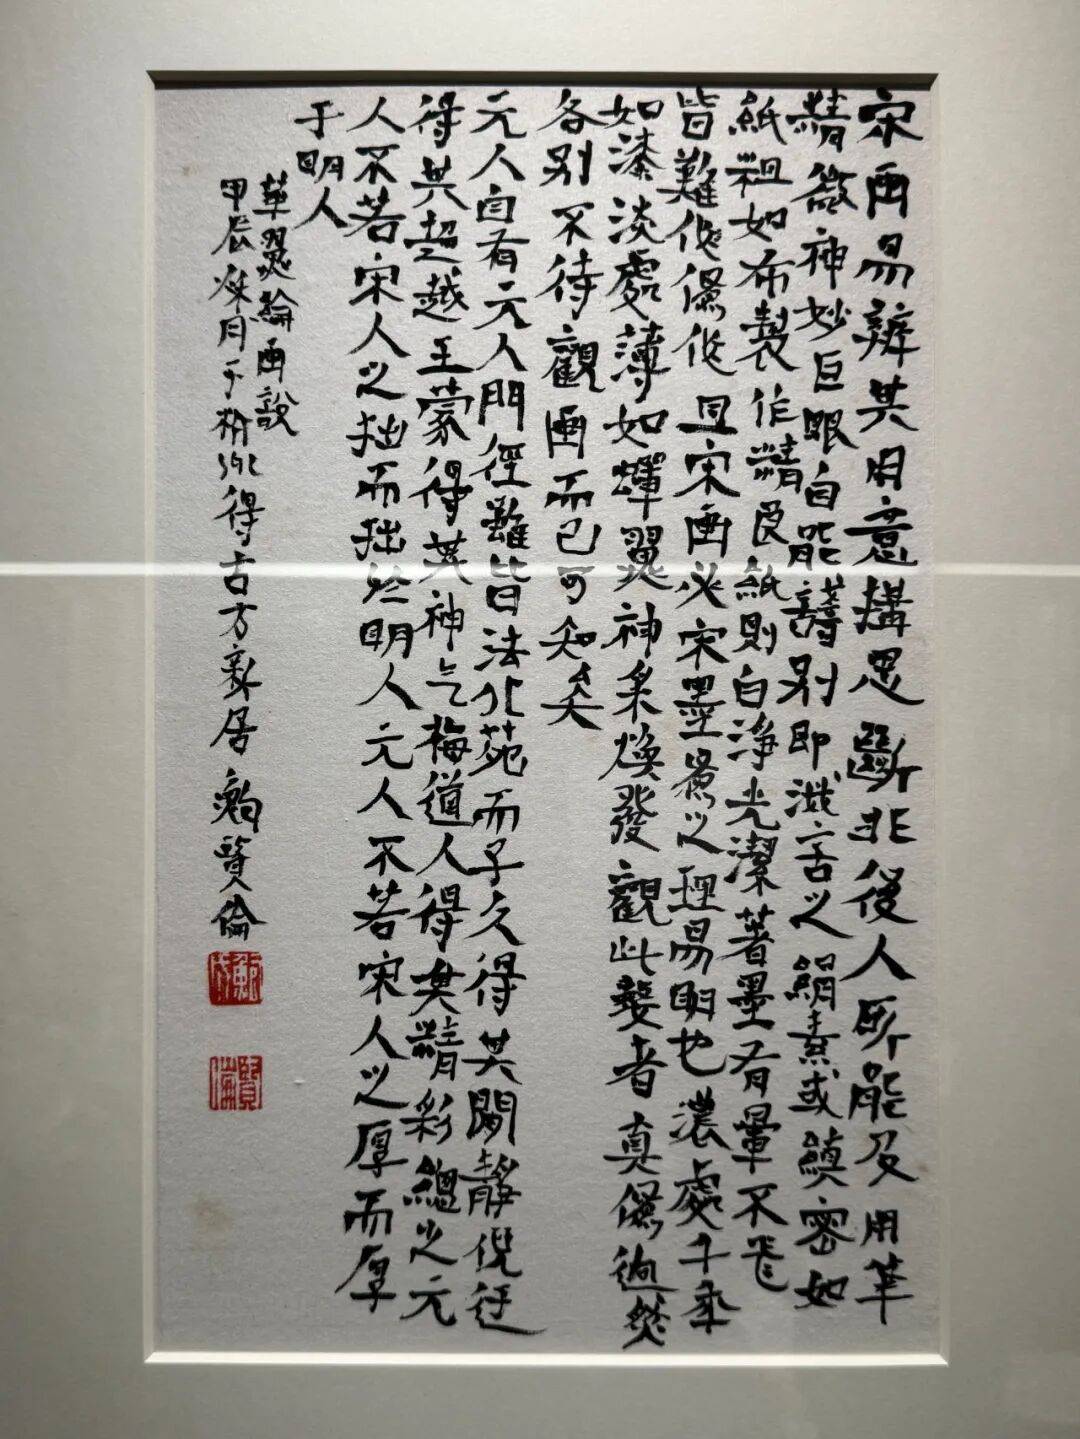 宋画易辨其用意搆思斷非後人所能及用筆
精微神妙巨眼自能識別即減舌之絹素或縝密如
紙粗如布製作精良紙則白淨光潔著墨有暈不飛
皆難作僞作且宋画必宋墨膠之理易明也濃處千年
如漆淡處薄如蟬翼神采煥發觀此數者真僞迥然
各別不待觀画而已可知矣
元人自有元人門徑雖皆法北苑而子久得其閒靜倪迂
得其超越王蒙得其神气梅道人得其精彩總之元
人不若宋人之拙而拙於明人元人不若宋人之厚而厚
于明人
華翼綸画說
甲辰 月于 得古方彝居 賢倫
賢倫